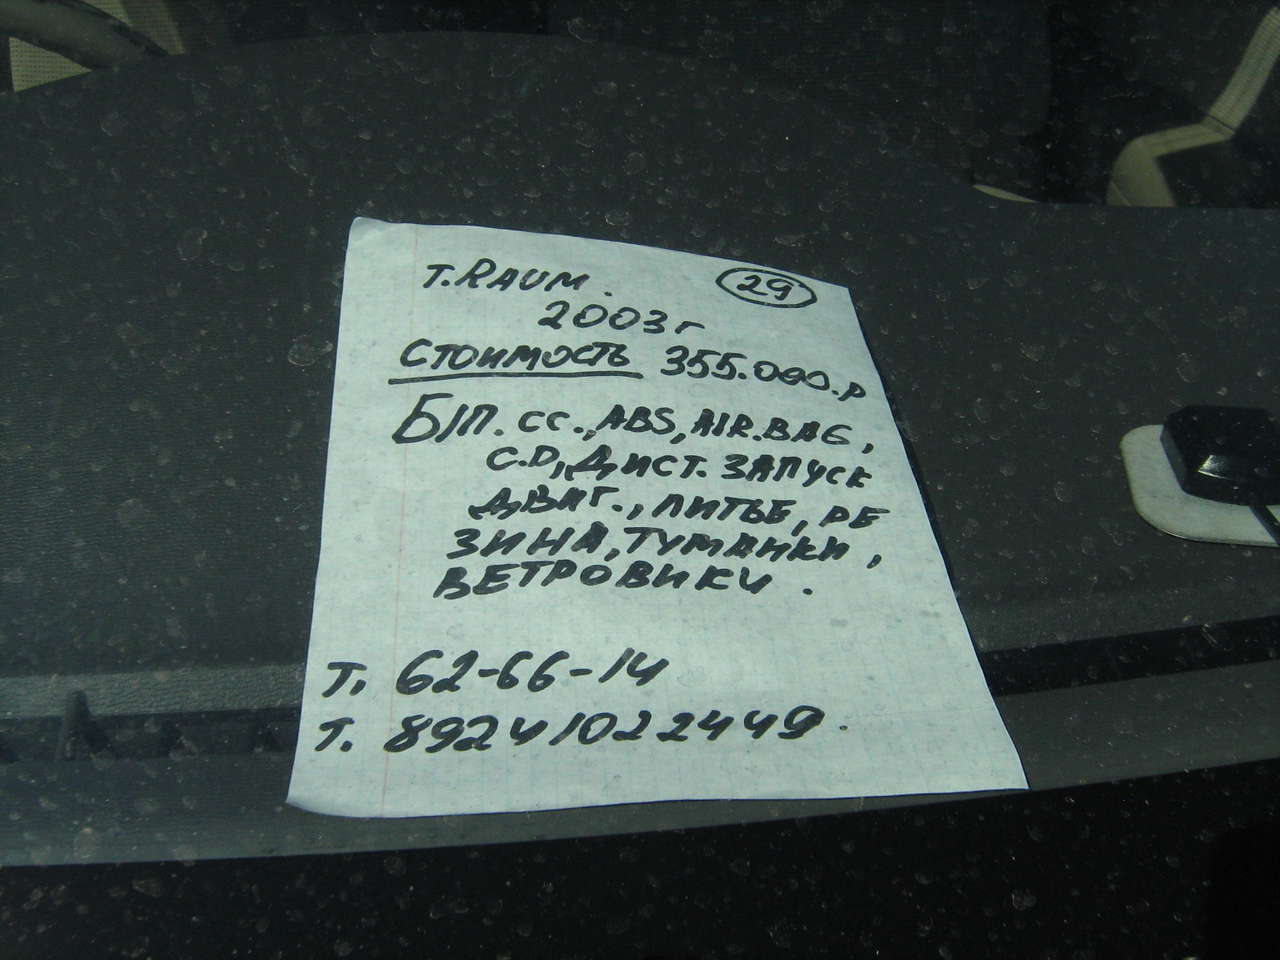 Т. RAUM. 29
2003г
СТОИМОСТЬ 355.000.р
Б/П. СС., ABS, AIR.BAG,
C.D, ДИСТ. ЗАПУСК
ДВИГ., ЛИТЬЕ, РЕ
ЗИНА, ТУМАНКИ,
ВЕТРОВИКИ.
Т. 62-66-14
Т. 89241022449.